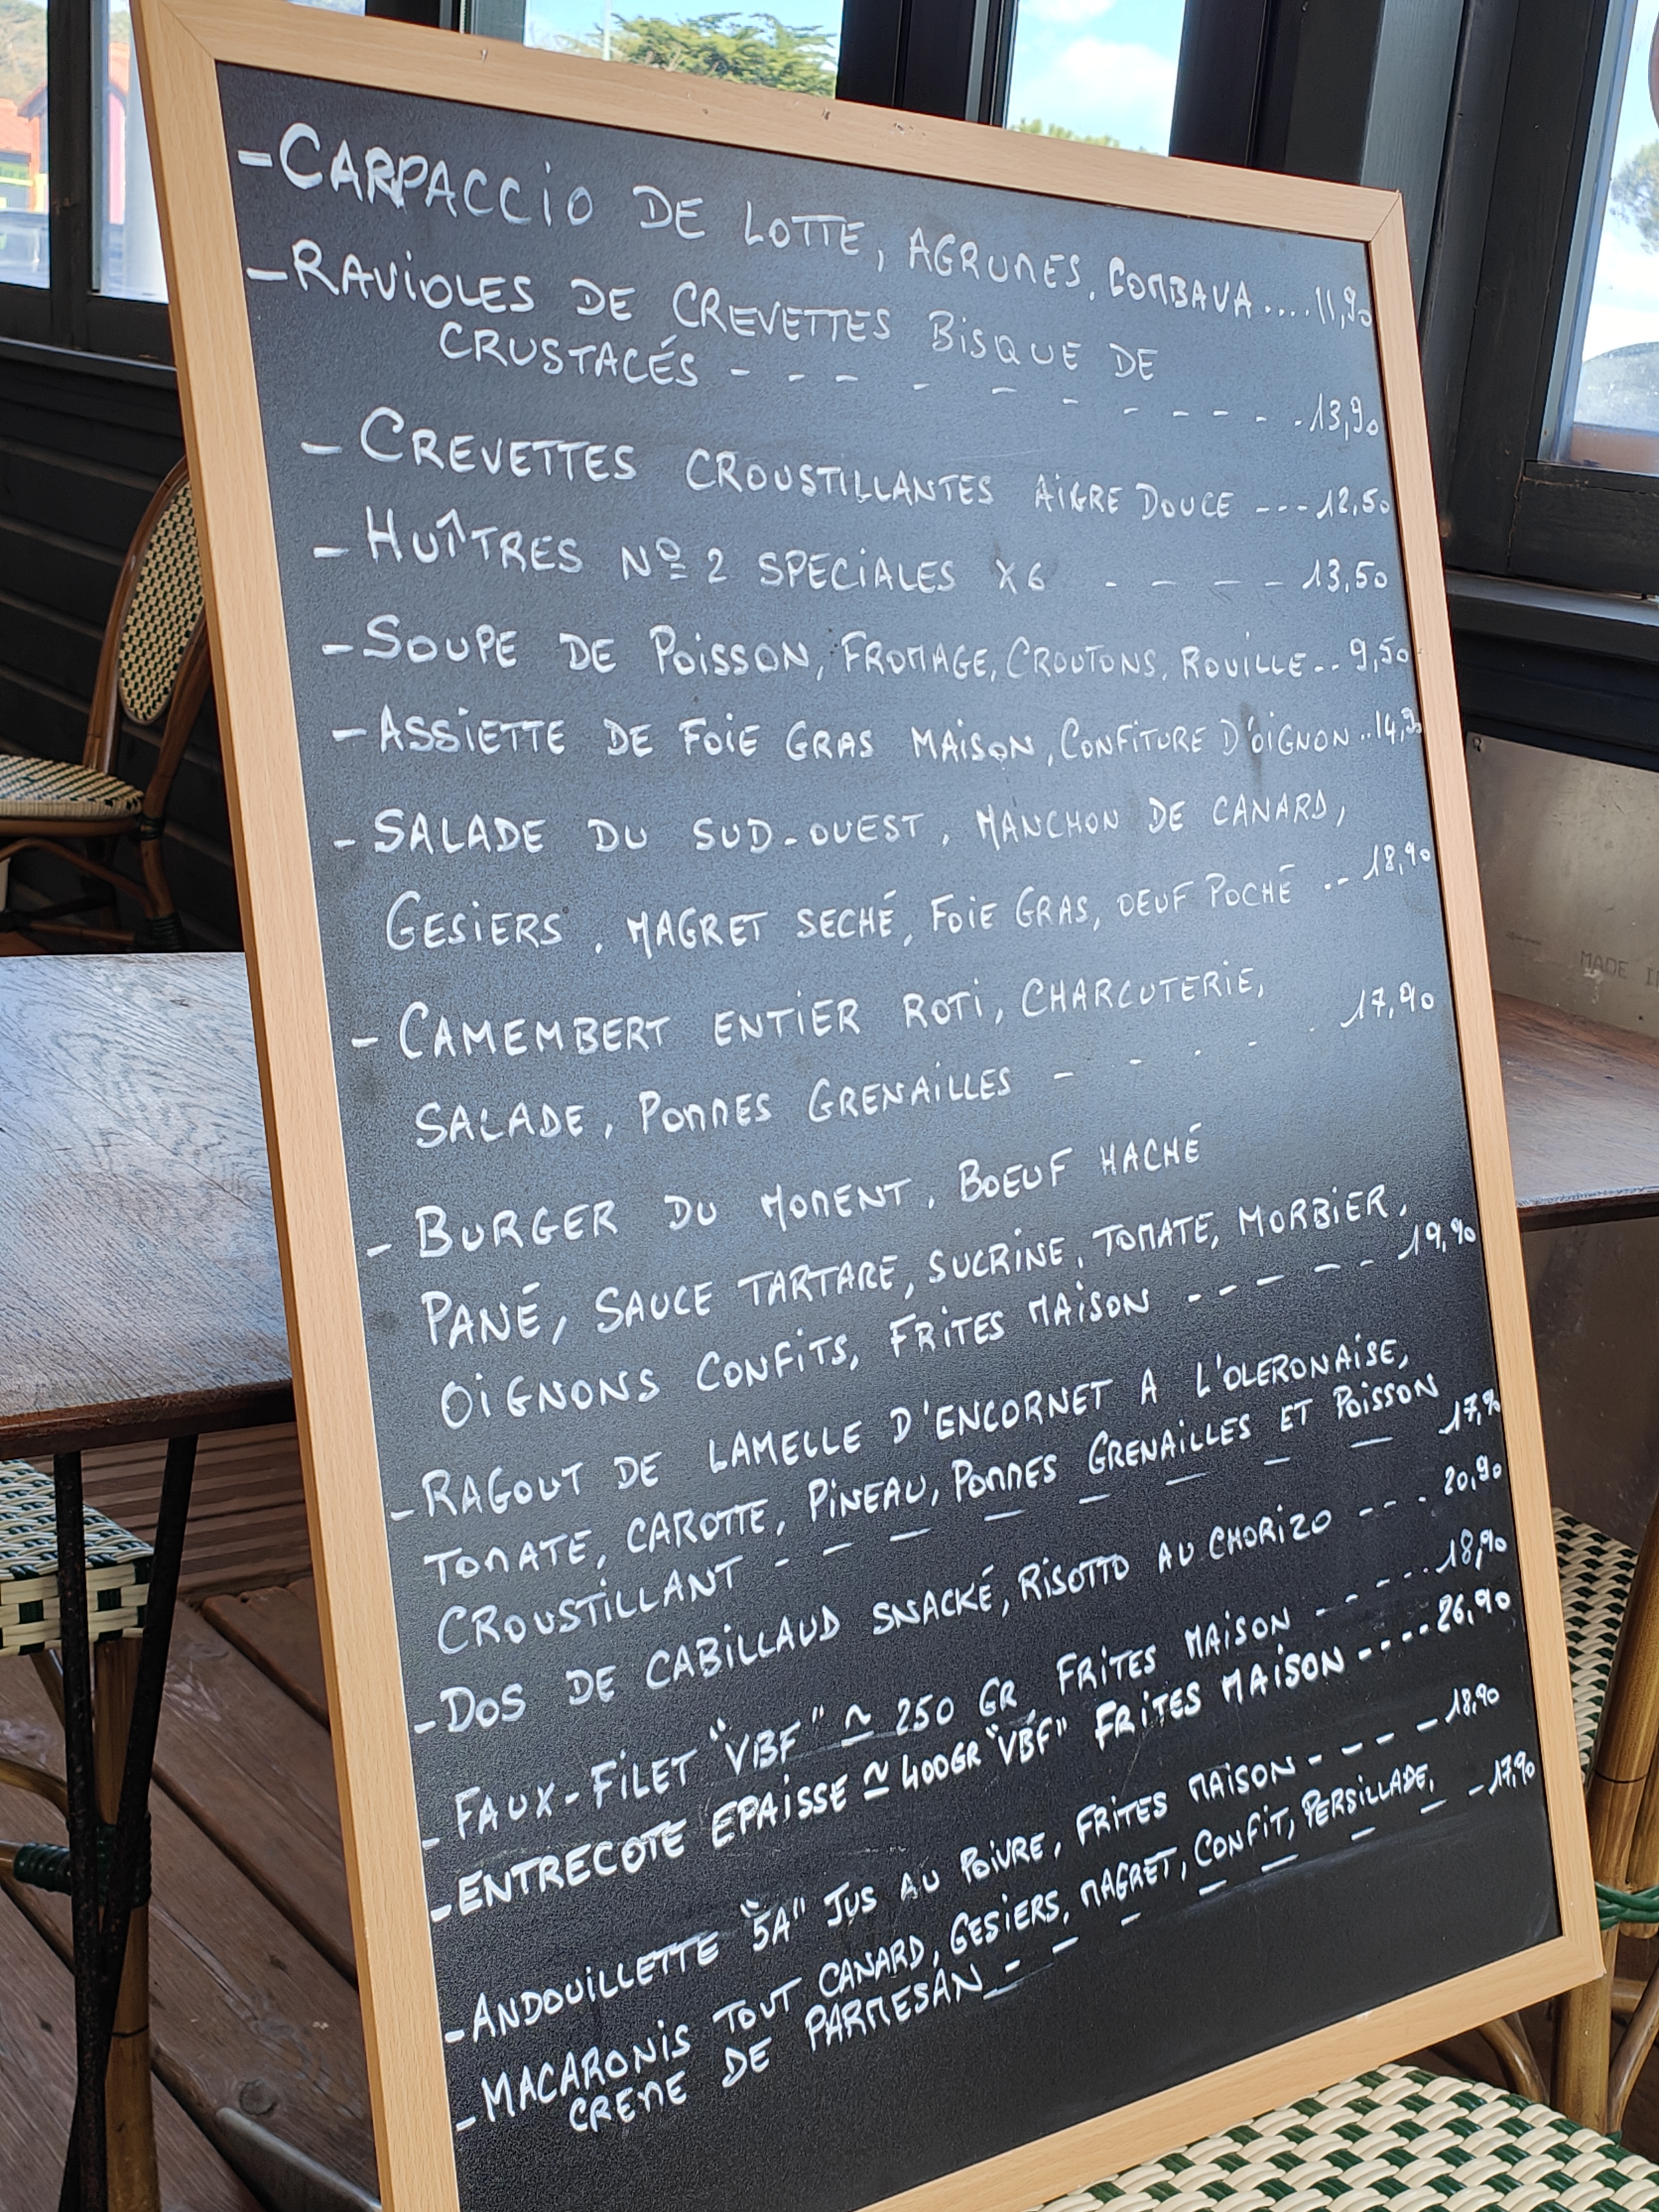 - CARPACCIO DE LOTTE, AGRUMES, COMBAVA....11,90
- RAVIOLES DE CREVETTES BISQUE DE
CRUSTACÉS - - - - - - - - - - -13,90
- CREVETTES CROUSTILLANTES AIGRE DOUCE ---12,50
- HUÎTRES Nº 2 SPECIALES X6 - - - - 13,50
- SOUPE DE POISSON, FROMAGE, CROUTONS, ROUILLE.. 9,50
- ASSIETTE DE FOIE GRAS MAISON, CONFITURE D'OIGNON..14,90
- SALADE DU SUD-OUEST, MANCHON DE CANARD,
GESIERS, MAGRET SECHÉ, FOIE GRAS, OEUF POCHÉ ..- 18,90
- CAMEMBERT ENTIER ROTI, CHARCUTERIE,
SALADE, POMMES GRENAILLES - - - - . 17,90
- BURGER DU MOMENT, BOEUF HACHÉ
PANÉ, SAUCE TARTARE, SUCRINE, TOMATE, MORBIER,
OIGNONS CONFITS, FRITES MAISON - - - - - - 19,90
- RAGOUT DE LAMELLE D'ENCORNET A L'OLERONAISE,
TOMATE, CAROTTE, PINEAU, POMMES GRENAILLES ET POISSON
CROUSTILLANT - - - - - - - - 17,90
- DOS DE CABILLAUD SNACKÉ, RISOTTO AU CHORIZO - - - . 20,90
- FAUX-FILET "VBF" ≃ 250 GR, FRITES MAISON - - - - ... 18,90
- ENTRECOTE EPAISSE ≃ 400GR "VBF" FRITES MAISON - - - - - 26,90
- ANDOUILLETTE "5A" JUS AU POIVRE, FRITES MAISON - - - - 18,90
- MACARONIS TOUT CANARD, GESIERS, MAGRET, CONFIT, PERSILLADE,
CREME DE PARMESAN - - - - - - - - - 17,90
MADE I